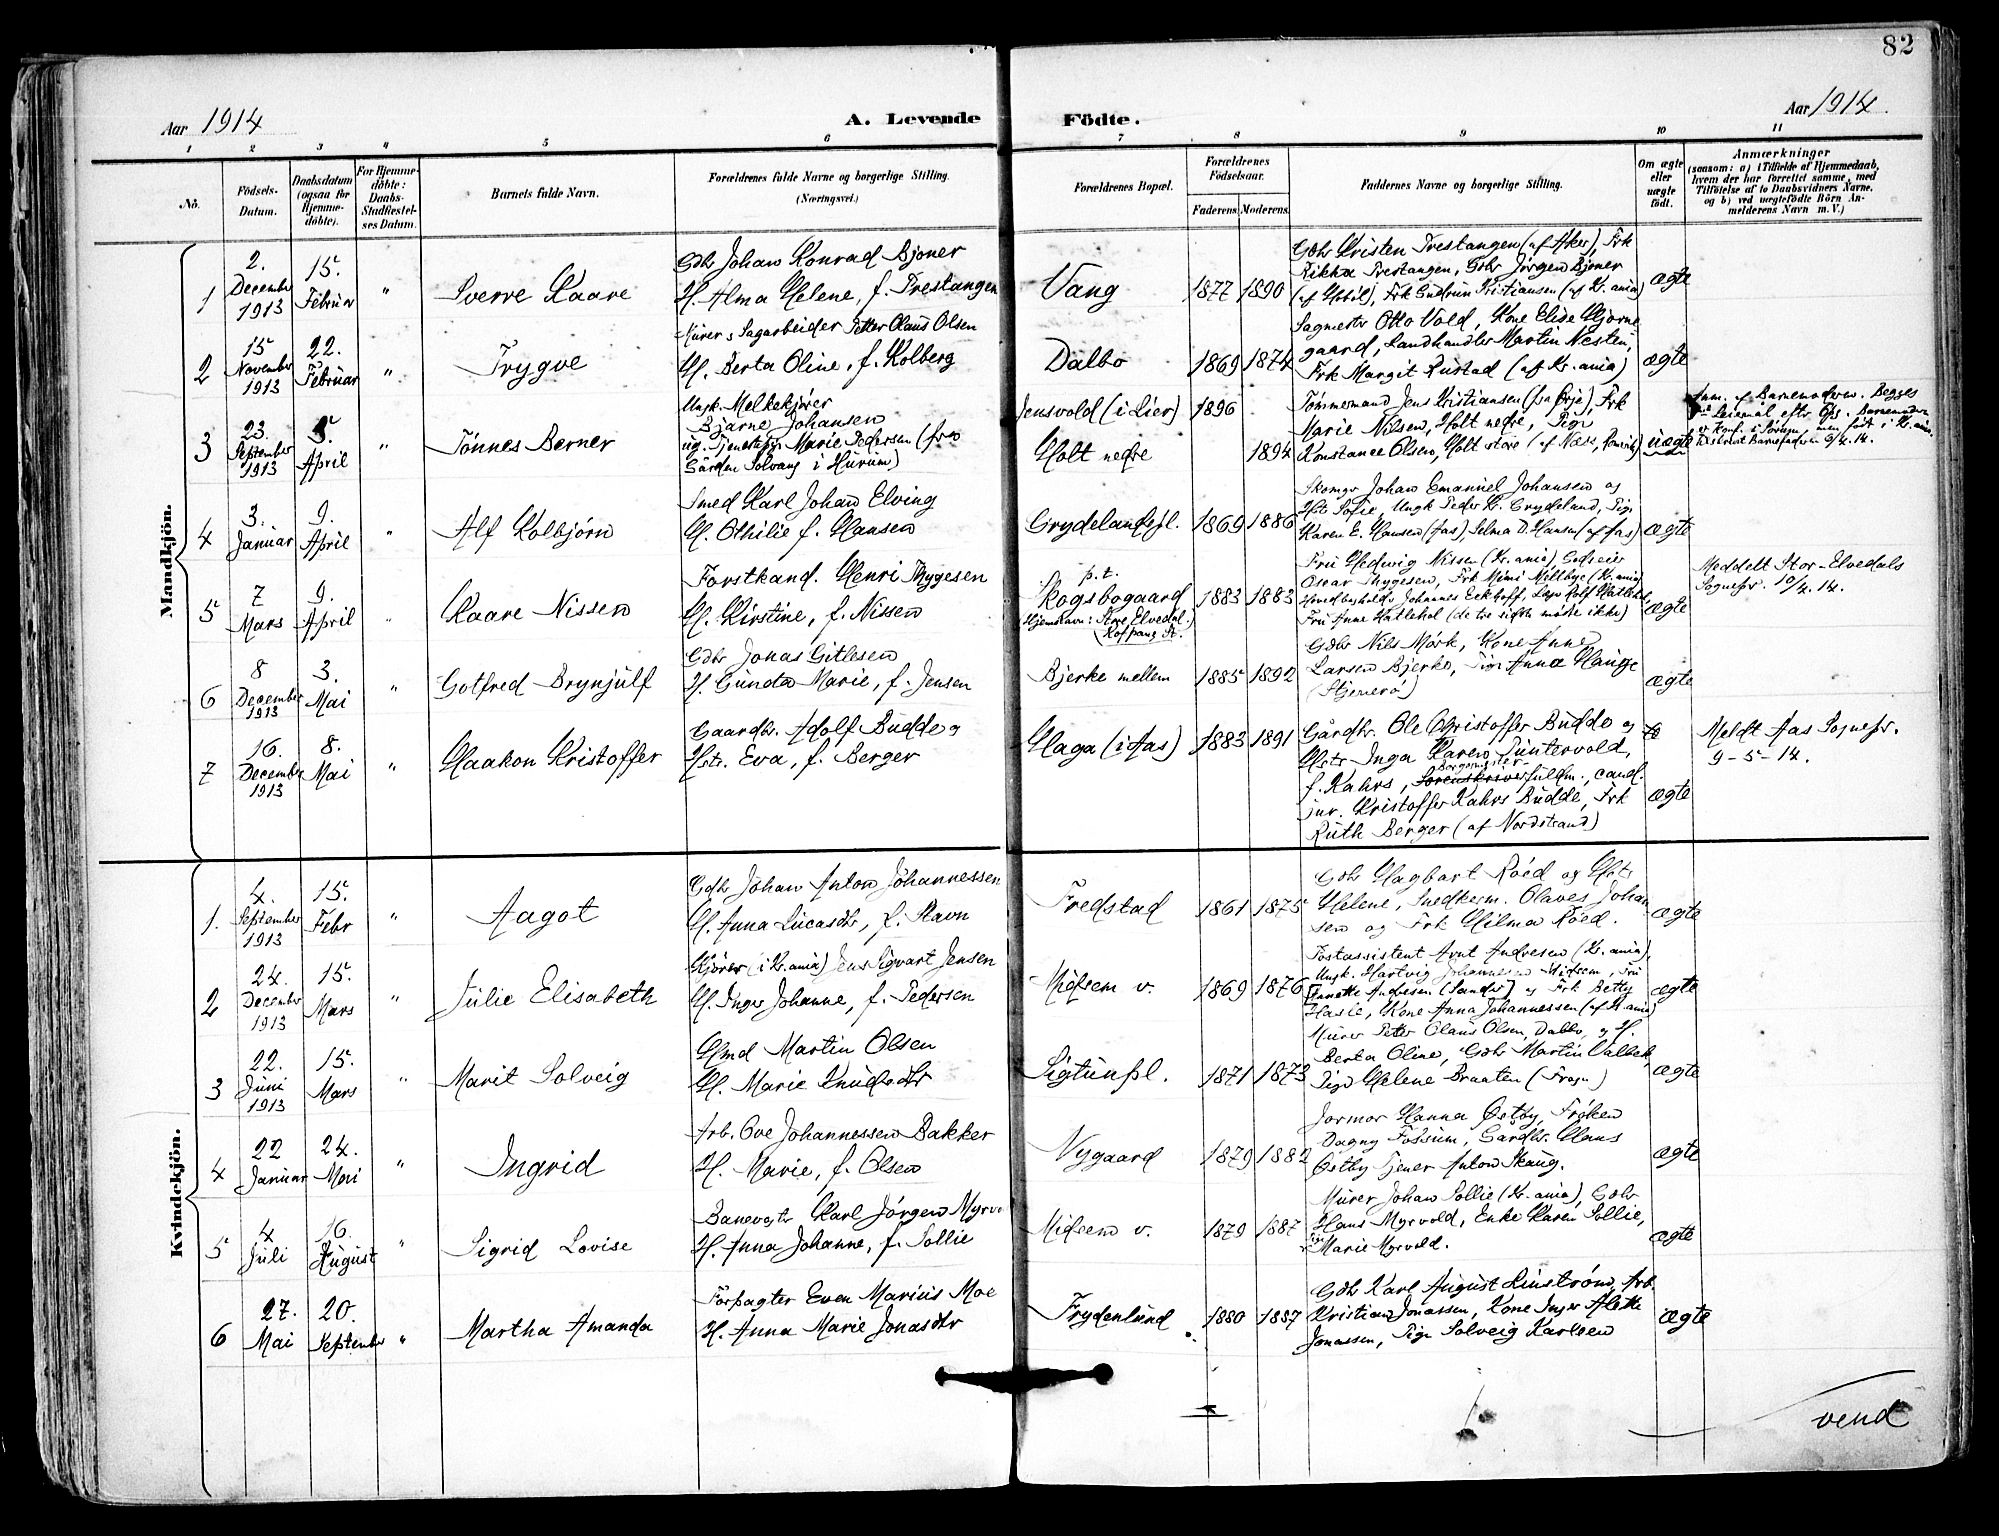 82
Aar 1914
A. Levende Födte.
Aar 1914.
1 2 3 4 5 6 7 8 9 10 11
No.
Födsels-
Datum.
Daabsdatum
(ogsaa for
Hjemme-
döbte).
For Hjemme-
döbte:
Daabs-
Stadfæstel-
ses Datum.
Barnets fulde Navn.
Forældrenes fulde Navne og borgerlige Stilling.
(Næringsvei.)
Forældrenes Bopæl.
Forældrenes
Födselsaar.
Faderens. Moderens.
Faddernes Navne og borgerlige Stilling.
Om ægte
eller
uægte
födt.
Anmærkninger
(saasom: a) i Tilfælde af Hjemmedaab,
hvem der har forrettet samme, med
Tilföielse af to Daabsvidners Navne,
og b) ved uægtefödte Börn An-
melderens Navn m. V.)
Mandkjön.
1
2.
December
1913
15.
Februar
"
Sverre Kaare
Gdbr Johan Konrad Bjoner
H. Alma Helene, f. Trestangen
Vang
1877 1890
Gdbr Kristen Trestangen (af Aker), Frk
Rikka Trestangen, Gdbr Jørgen Bjoner
(af Hobøl), Frk Gudrun Kristiansen (af Kr.ania)
ægte
2
15
November
1913
22.
Februar
"
Trygve
Murer & Sagarbeider Petter Olaus Olsen
H. Berta Oline, f. Kolberg
Dalbo
1869 1874
Sagmestr Otto Vold, Kone Elise Hjorne
gaard, Landhandler Martin Nesten,
Frk Margit Rustad (af Kr.ania)
ægte
3
23.
September
1913
5.
April
"
Tønnes Berner
Ungk. Melkekjører
Bjarne Johansen
ug. Tjenestepi. Marie Pedersen (fra
Gården Solvang i Hurum)
Jensvold (i Lier)
Holt nedre
1896
1894
Tømmermand Jens Kristiansen (fra Ørje), Frk
Marie Nilsen, Holt nedre, Pige
Konstance Olsen, Holt store (af Næs, Romerike)
uægte
Anm. af Barnemoderen. Begges
Leiermål efter Opg. Barnemoderen
er konf. i Sørum, men født i Kr.ania.
4
3.
Januar
9.
April
"
Alf Kolbjørn
Smed Karl Johan Elving
H. Othilie f. Hansen
Grydelandspl.
1869 1886
Skomgr Johan Emanuel Johansen og
Hstr Sofie, Ungk Peder Kr. Grydeland, Pige
Karen E. Hansen (Aas), Selma D. Hansen (af Aas)
ægte
5
7
Mars
9.
April
"
Kaare Nissen
Forstkand. Henri Thygesen
H. Kirstine, f. Nissen
p.t.
Skogsbogaard
Hjemstavn: Store Elvedal.
(Koppang St.
1883 1883
Fru Hedvig Nissen (Kr.ania) Godseier
Oscar Thygesen, Frk Mimi Mellbye (Kr.ania)
Johannes Eckhoff, Rolf Hatlehol,
Fru Anne Hatlehol (de tre sidste mødte ikke)
ægte
Meddelt Stor-Elvedals
Sognepr. 10/4. 14.
6
8
December
1913
3.
Mai
"
Gotfred Brynjulf
Gdbr Jonas Gitlesen
H. Gunda Marie, f. Jensen
Bjerke mellem
1885 1892
Gdbr Nils Mørk, Kone Anna
Larsen Bjerke, Pige Anna Hauge
ægte
7
16.
December
1913
8.
Mai
"
Haakon Kristoffer
Gaardbr. Adolf Budde og
Hstr. Eva, f. Berger
Haga (i Aas)
1883 1891
Gårdbr. Ole Christoffer Budde og
Hstr Inga Karen Guntervold,
f. Kahrs, Sorenskriverfuldm., cand.
Borgermester-
jur. Kristoffer Kahrs Budde, Frk
Ruth Berger (af Nordstrand)
ægte
Meldt Aas Sognepr.
9-5-14.
Kvindekjön.
1.
4.
September
1913
15.
Febr
"
Aagot
Gdbr Johan Anton Johannessen
H. Anna Lucasdtr, f. Stavn
Fredstad
1861 1875
Gdbr Hagbart Røed og Hstr
Helene, Snedkerm. Olaves Johan
sen og Frk Hilma Røed.
ægte
2
24.
December
1913
15.
Mars
"
Julie Elisabeth
Kjører (i Kr.ania) Jens Sigvart Jensen
H. Inger Johanne, f. Pedersen
Midsem v.
1869 1876
Postassistent Arnt Andresen (Kr.ania),
Ungk. Hartvig Johannessen Midsem, Fru
Annette Andresen (Sander) og Frk Betty
Hasie, Kone Anna Johannessen (af Kr.ania)
ægte
3
22.
Juni
1913
15.
Mars
"
Marit Solveig
Hmd Martin Olsen
H. Marie Knudsdtr
Sigtunpl.
1871 1873
Murer Peter Olaus Olsen, Dalbo, og H.
Berta Oline, Gdbr Martin Valbek,
Pige Helene Braaten (Frogn)
ægte
4
22
Januar
24.
Mai
"
Ingrid
Arb. Ove Johannessen Bakker
H. Marie, f. Olsen
Nygaard
1879 1882
Jormor Hanna Østby, Frøken
Dagny Fossum, Gårdbr. Hans
Østby Tjener Anton Skaug.
ægte
5
4
Juli
16.
August
"
Sigrid Lovise
Banevogtr Karl Jørgen Myrvo
H. Anna Johanne, f. Sollie
Midsem v.
1879 1887
Murer Johan Sollie (Kr.ania), Gdbr
Hans Myrvold, Enke Karen Sollie,
Marie Myrvold.
ægte
6
27.
Mai
20.
September
"
Martha Amanda
Forpagter Even Marius Moe
H. Anna Marie Jonasdtr
Frydenlund
1880 1887
Gdbr Karl August Linstrøm, Arb.
Kristian Jonassen, Kone Inger Alette
Jonassen, Pige Solveig Karlsen
ægte
vend